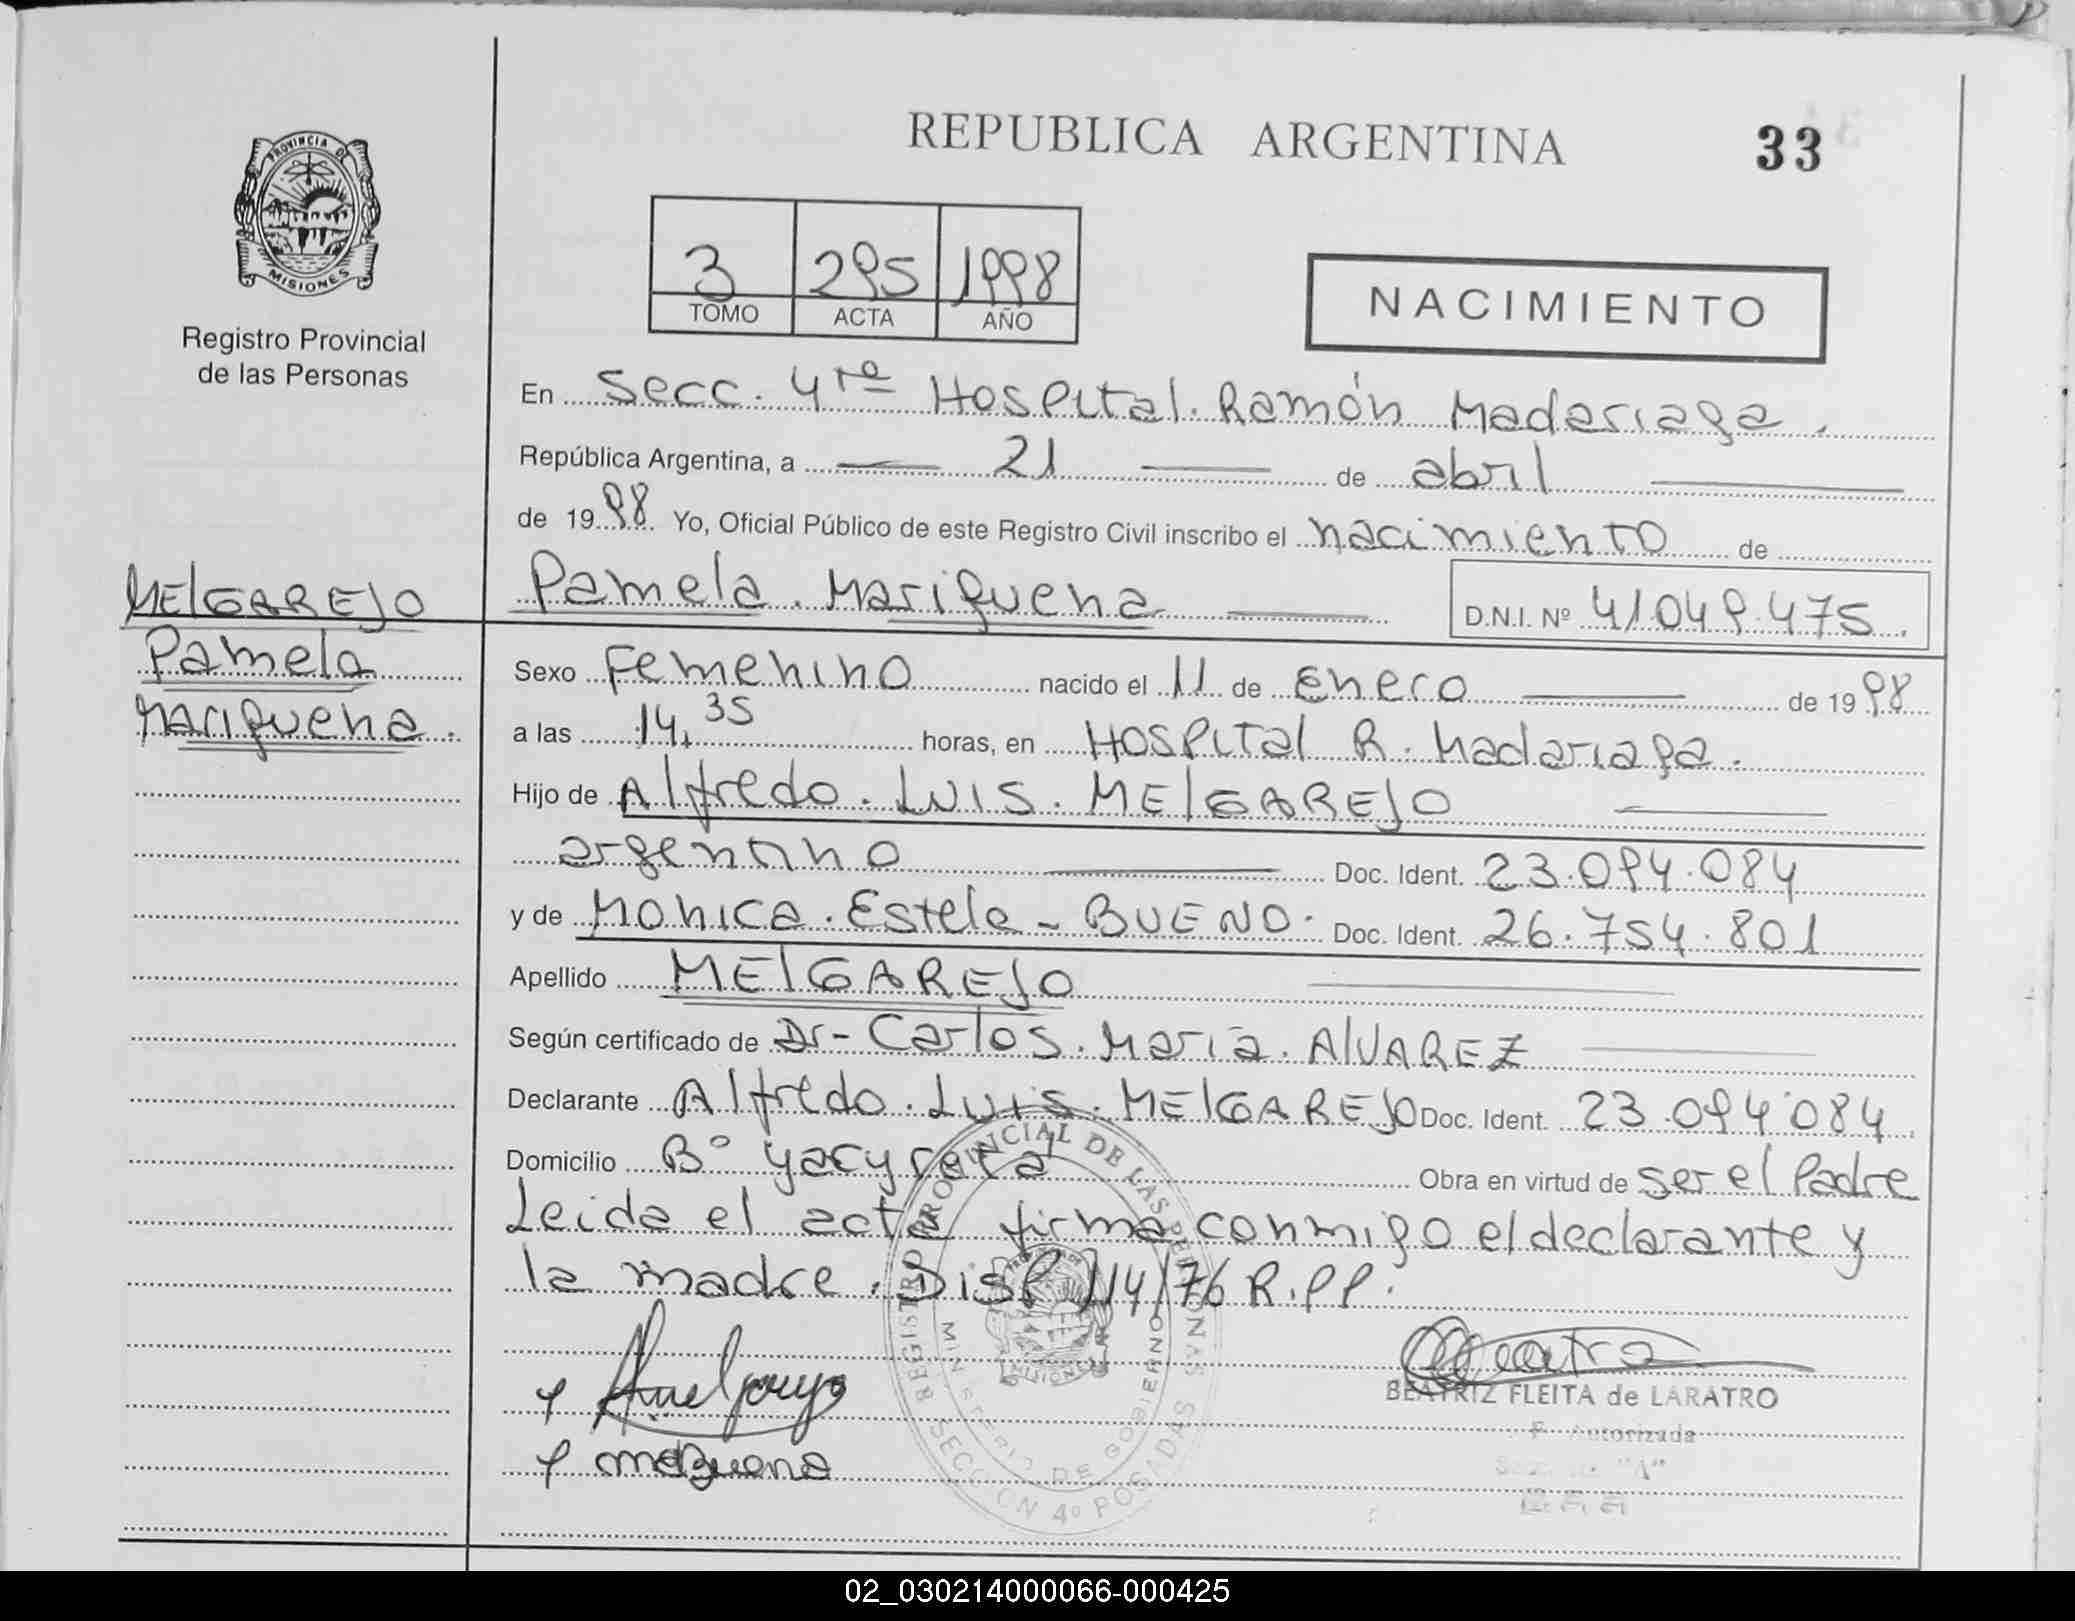 REPUBLICA ARGENTINA
33
PROVINCIA DE
MISIONES
Registro Provincial
de las Personas
3 295 1998
TOMO ACTA AÑO
NACIMIENTO
En Secc. 4ta Hospital Ramón Madariaga.
República Argentina, a 21 de abril
de 1998 Yo, Oficial Público de este Registro Civil inscribo el nacimiento de
MELGAREJO
Pamela
Mariquena.
Pamela Mariquena
D.N.I. Nº 41.049.475.
Sexo Femenino nacido el 11 de Enero de 1998
a las 14,35 horas, en HOSPITAL R. Madariaga.
Hijo de Alfredo LUIS MELGAREJO
argentino Doc. Ident. 23.094.084
y de Monica Estela - BUENO. Doc. Ident. 26.754.801
Apellido MELGAREJO
Según certificado de Dr- Carlos María ALVAREZ
Declarante Alfredo Luis MELGAREJO Doc. Ident. 23.094.084.
Domicilio Bº Yacyreta Obra en virtud de ser el Padre
Leida el acta firma conmigo el declarante y
la madre. Disp 114/76 R.P.P.
REGISTRO PROVINCIAL DE LAS PERSONAS
MINISTERIO DE GOBIERNO
SECCION 4º POSADAS
MISIONES
BEATRIZ FLEITA de LARATRO
Autorizada
"A"
02_030214000066-000425